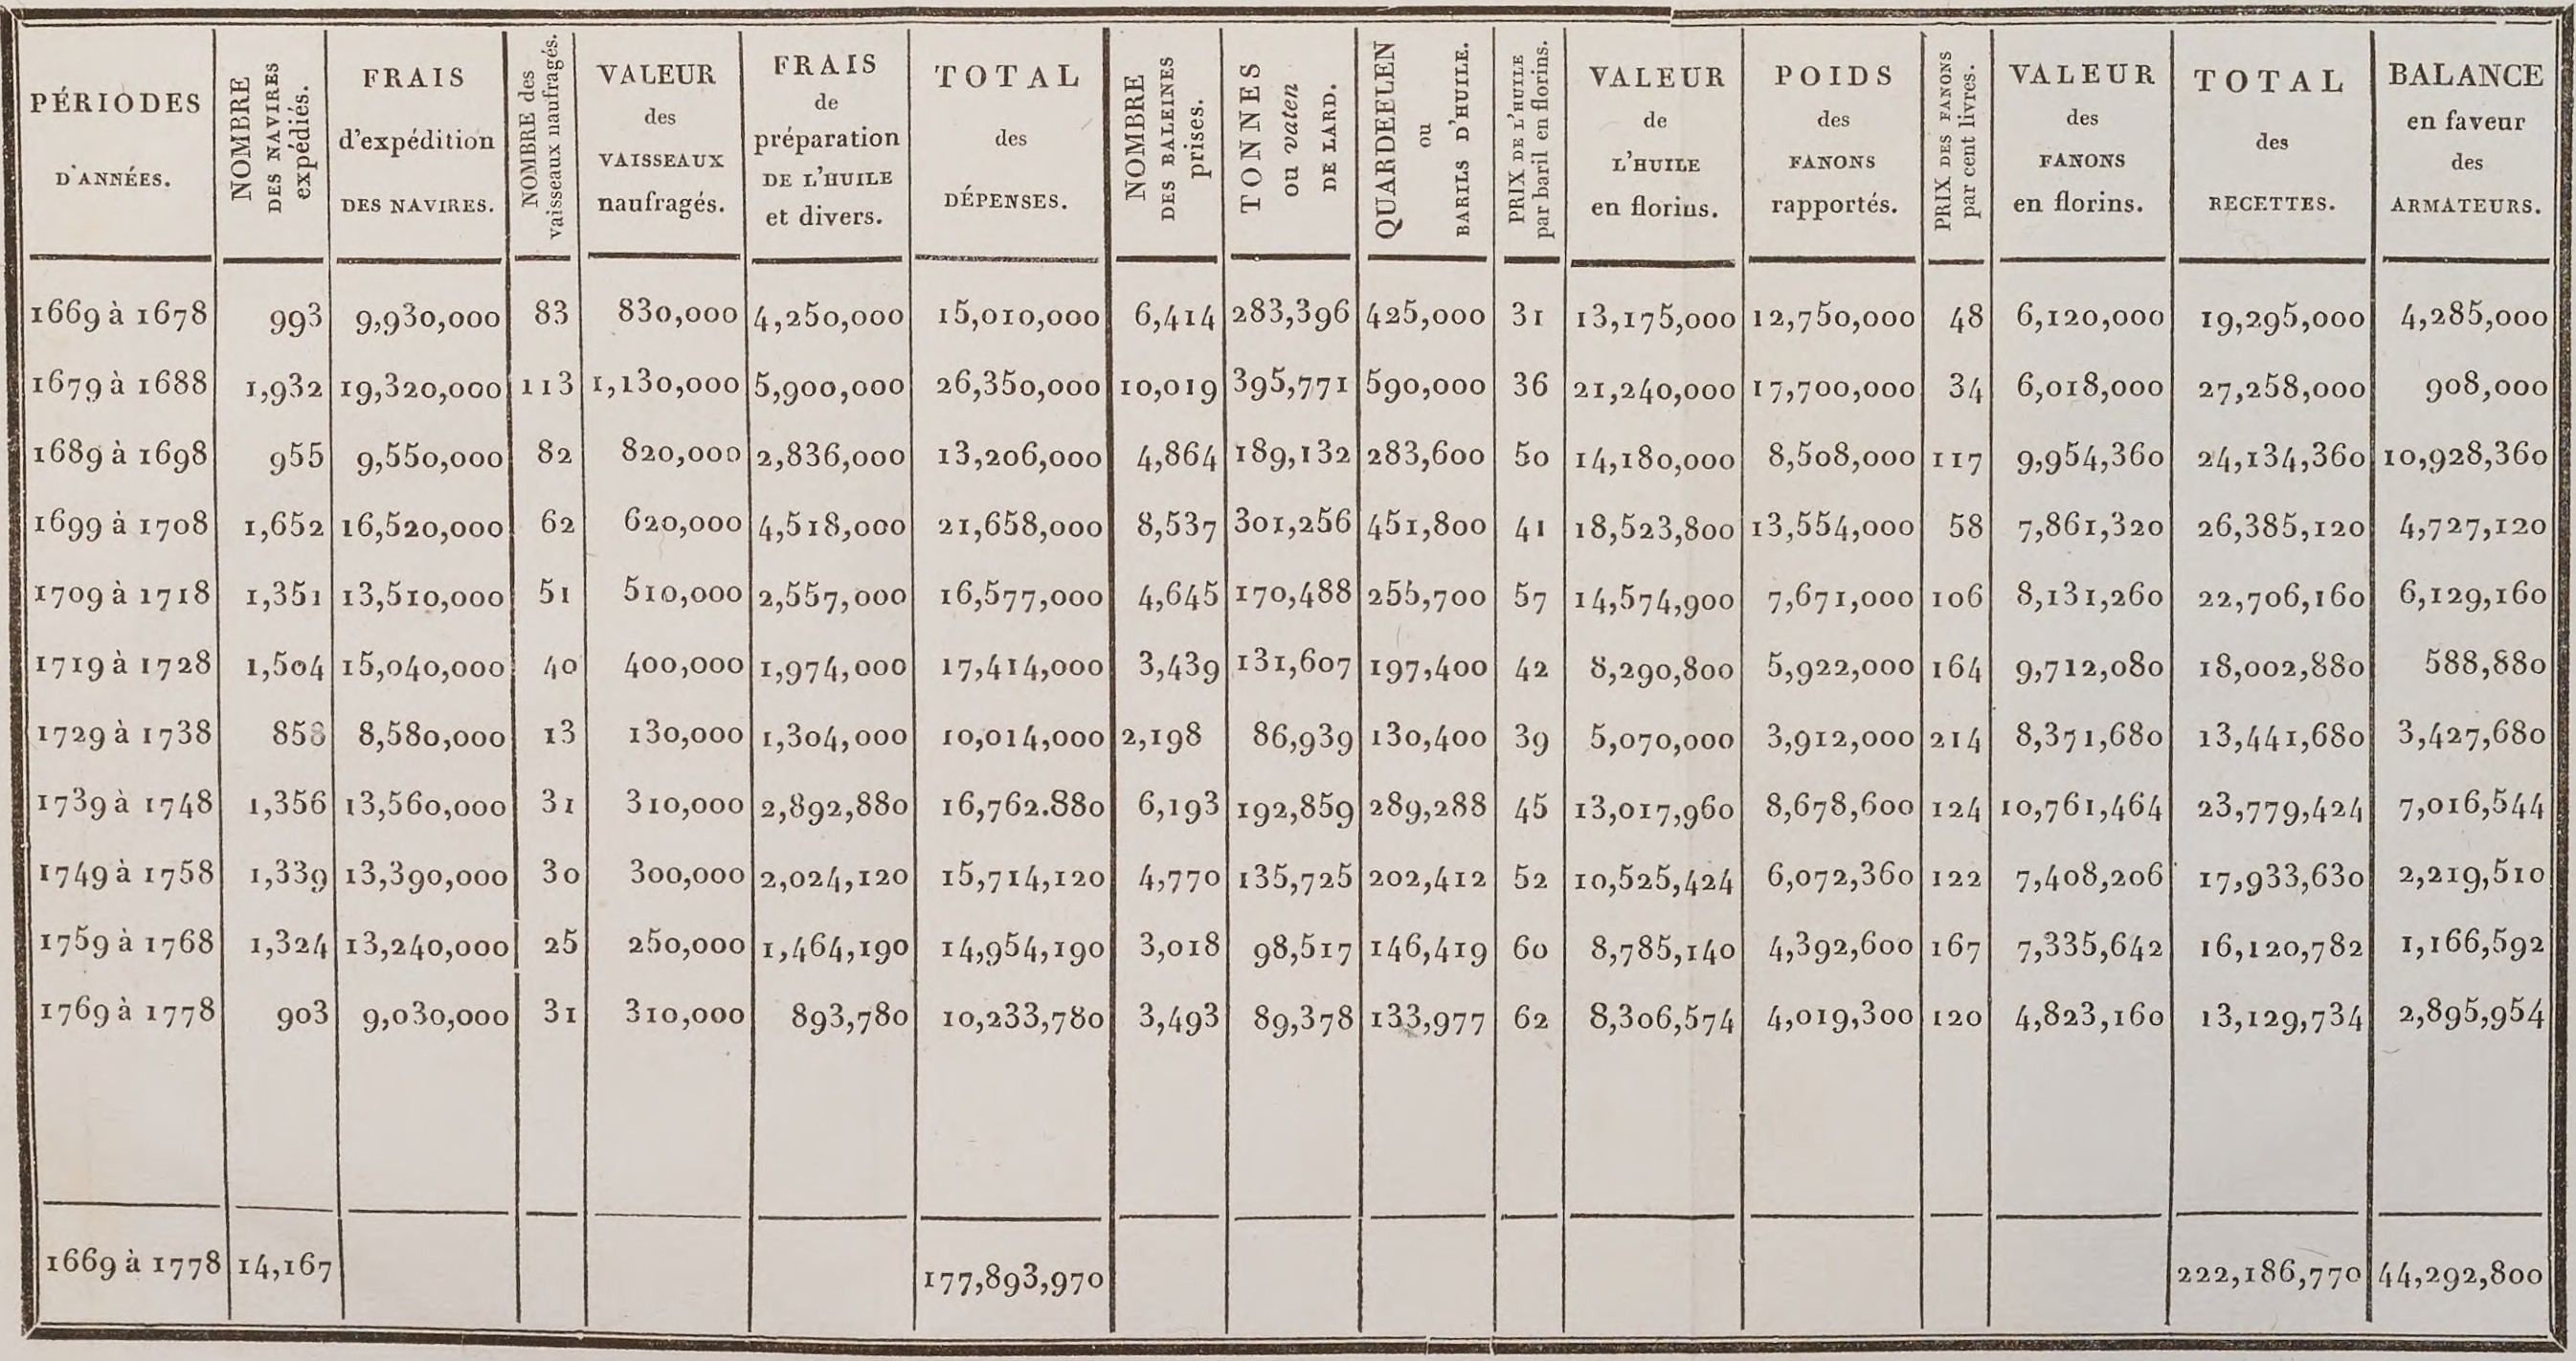 PÉRIODES D'ANNÉES.
NOMBRE DES NAVIRES expédiés.
FRAIS d'expédition DES NAVIRES.
NOMBRE des vaisseaux naufragés.
VALEUR des VAISSEAUX naufragés.
FRAIS de préparation DE L'HUILE et divers.
TOTAL des DÉPENSES.
NOMBRE DES BALEINES prises.
TONNES ou vaten DE LARD.
QUARDEELEN ou BARILS D'HUILE.
PRIX DE L'HUILE par baril en florins.
VALEUR de L'HUILE en florins.
POIDS des FANONS rapportés.
PRIX DES FANONS par cent livres.
VALEUR des FANONS en florins.
TOTAL des RECETTES.
BALANCE en faveur des ARMATEURS.
1669 à 1678 993 9,930,000 83 830,000 4,250,000 15,010,000 6,414 283,396 425,000 31 13,175,000 12,750,000 48 6,120,000 19,295,000 4,285,000
1679 à 1688 1,932 19,320,000 113 1,130,000 5,900,000 26,350,000 10,019 395,771 590,000 36 21,240,000 17,700,000 34 6,018,000 27,258,000 908,000
1689 à 1698 955 9,550,000 82 820,000 2,836,000 13,206,000 4,864 189,132 283,600 50 14,180,000 8,508,000 117 9,954,360 24,134,360 10,928,360
1699 à 1708 1,652 16,520,000 62 620,000 4,518,000 21,658,000 8,537 301,256 451,800 41 18,523,800 13,554,000 58 7,861,320 26,385,120 4,727,120
1709 à 1718 1,351 13,510,000 51 510,000 2,557,000 16,577,000 4,645 170,488 255,700 57 14,574,900 7,671,000 106 8,131,260 22,706,160 6,129,160
1719 à 1728 1,504 15,040,000 40 400,000 1,974,000 17,414,000 3,439 131,607 197,400 42 8,290,800 5,922,000 164 9,712,080 18,002,880 588,880
1729 à 1738 858 8,580,000 13 130,000 1,304,000 10,014,000 2,198 86,939 130,400 39 5,070,000 3,912,000 214 8,371,680 13,441,680 3,427,680
1739 à 1748 1,356 13,560,000 31 310,000 2,892,880 16,762.880 6,193 192,859 289,288 45 13,017,960 8,678,600 124 10,761,464 23,779,424 7,016,544
1749 à 1758 1,339 13,390,000 30 300,000 2,024,120 15,714,120 4,770 135,725 202,412 52 10,525,424 6,072,360 122 7,408,206 17,933,630 2,219,510
1759 à 1768 1,324 13,240,000 25 250,000 1,464,190 14,954,190 3,018 98,517 146,419 60 8,785,140 4,392,600 167 7,335,642 16,120,782 1,166,592
1769 à 1778 903 9,030,000 31 310,000 893,780 10,233,780 3,493 89,378 133,977 62 8,306,574 4,019,300 120 4,823,160 13,129,734 2,895,954
1669 à 1778 14,167 177,893,970 222,186,770 44,292,800